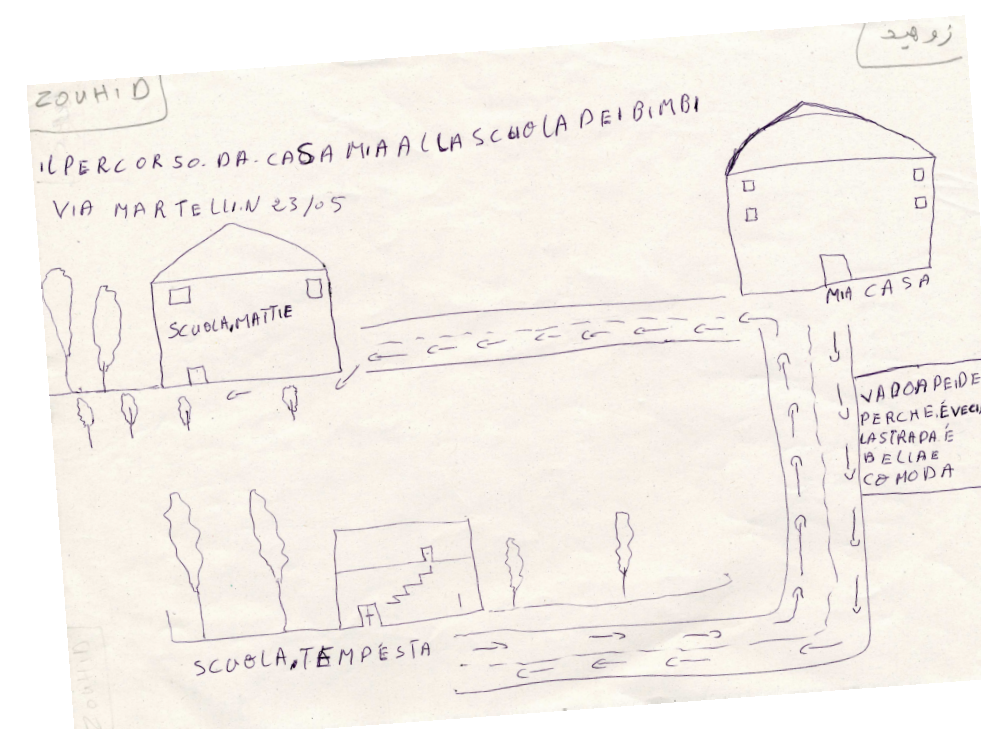 ZOUHID
زوهيد
IL PERCORSO. DA. CASA MIA ALLA SCUOLA DEI BIMBI
VIA MARTELLI.N 23/05
SCUOLA.MATTIE
MIA CASA
VADO A PEIDE
PERCHE.É VECI
LA STRADA.É
BELLA E
COMODA
SCUOLA.TEMPESTA